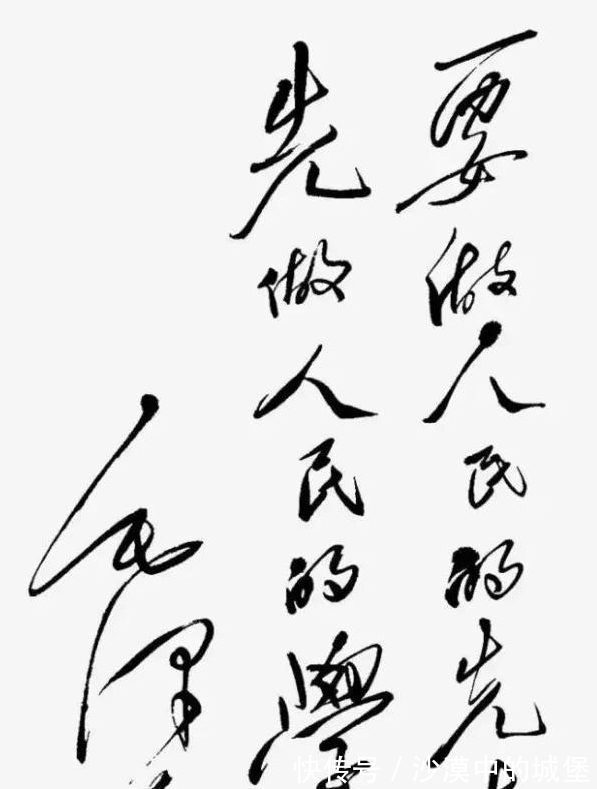 要做人民的先
先做人民的學
毛泽
快传号/沙漠中的城堡